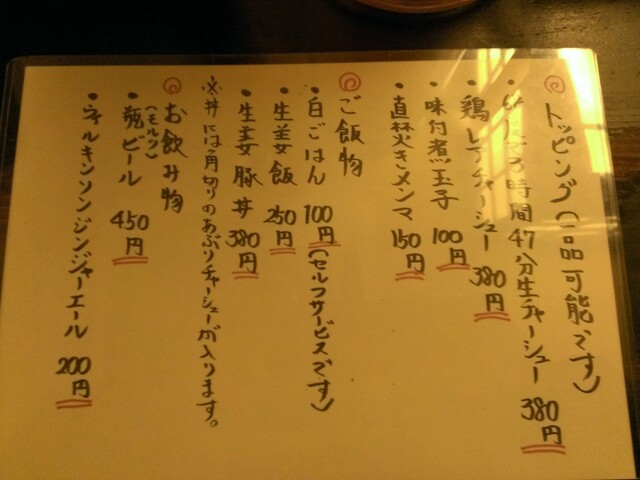 トッピング(一品可能です)
時間47分生チャーシュー 380円
鶏レアチャーシュー 380円
味付煮玉子 100円
直焚きメンマ 150円
ご飯物
白ごはん 100円(セルフサービスです)
生姜飯 250円
生姜豚丼 380円
※丼には角切りのあぶりチャーシューが入ります。
お飲み物
瓶ビール 450円
(モルツ)
ウィルキンソンジンジャーエール 200円